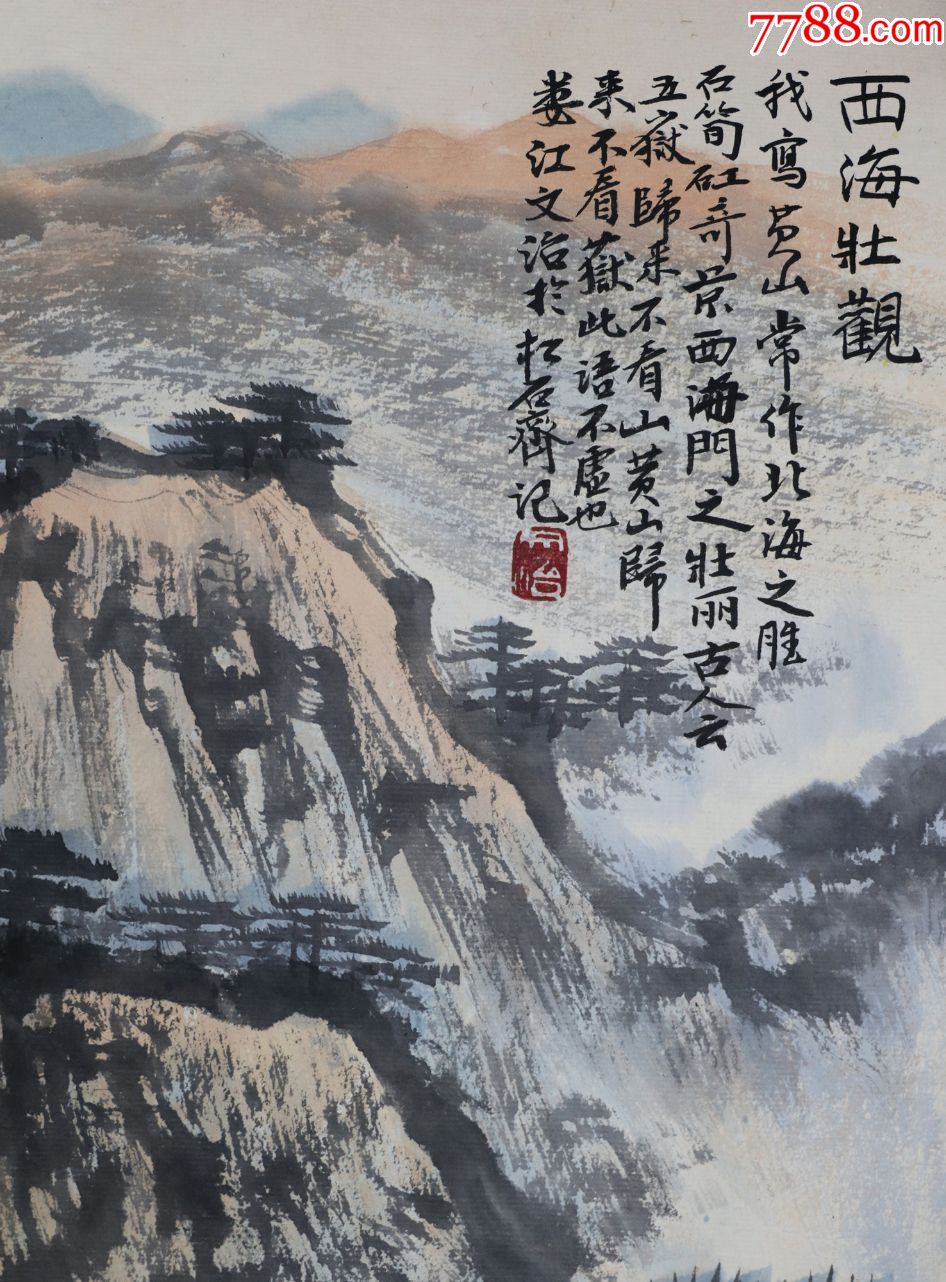 7788.com
西海壯觀
我寫黄山常作北海之胜
石筍矼奇景西海門之壯丽古人云
五嶽歸来不看山黄山歸
来不看嶽此语不虛也
娄江文治於松石齊记
文治